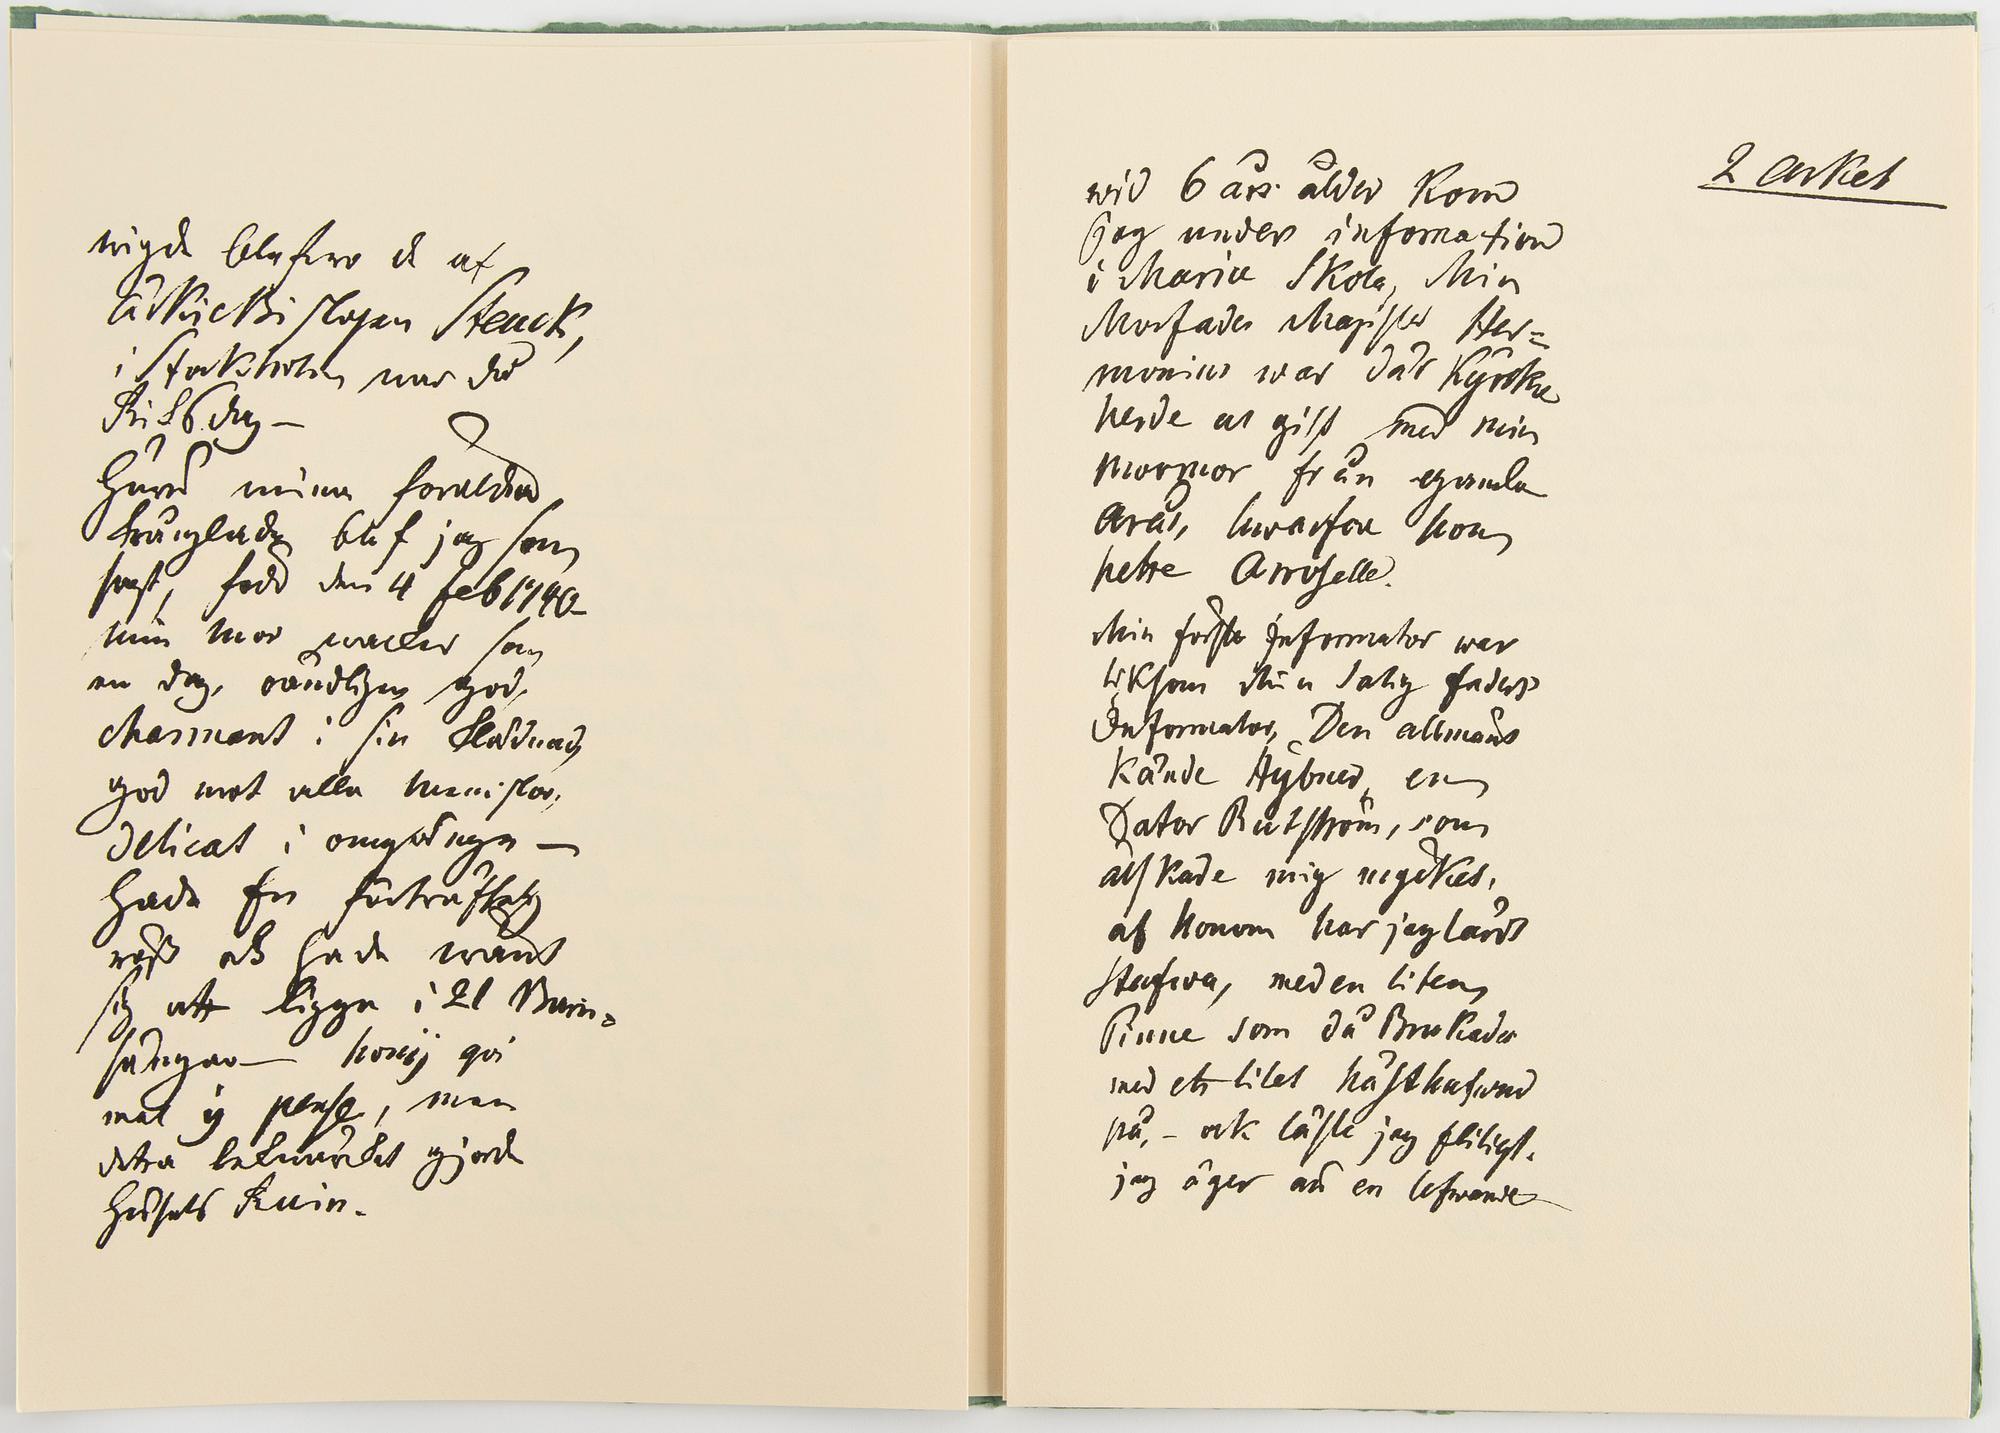 wigde blefwo de af
ärkiebiskopen Steuck,
i Stockholm war då
Riksdag —
Huru mina föräldrar
kruglade blef jag som
sagt, född den 4 Feb 1740
min mor wacker som
en dag, oändligen god,
charmant i sin klädnad
god mot alla meniskor,
delicat i omgänge —
hade en förträfflig
röst och hade want
sig att ligga i 21 Barn=
sängar — honij qvi
mal ÿ pense, men
detta oaktadt gjorde
husets Ruin.
2 arket
wid 6 års ålder kom
jag under information
i Maria Skola, Min
Morfader Magister Her=
monius war där kyrko
herde och gift med min
mormor från gamla
Arås, hwarföre hon
hette Arosselle.
Min första Informator war
liksom Min Salig faders
Informator, Den allmänt
kände Hybner, en
Pator Rutström, som
älskade mig mycket,
af honom har jag lärdt
stafwa, med en liten
Pinne som då Brukades
med ett litet hästhufwud
på, – ock läste jag flitigt.
jag äger än en lefwande